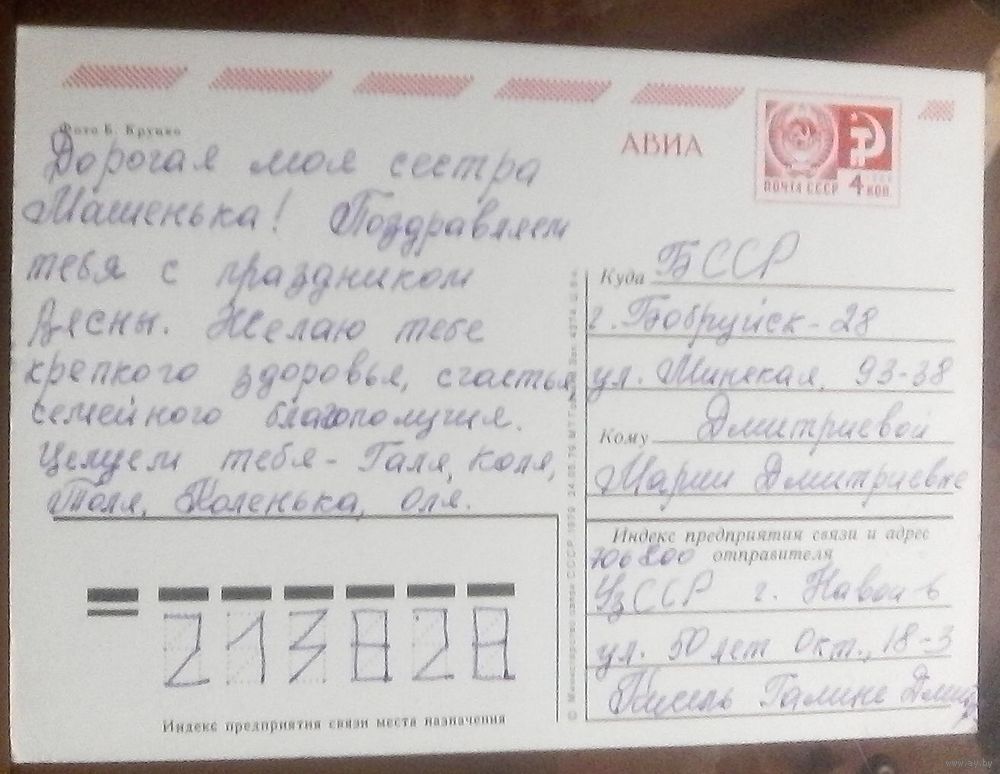 Фото Б. Круцко
АВИА
ПОЧТА СССР 4 КОП.
Дорогая моя сестра
Машенька! Поздравляем
тебя с праздником
Весны. Желаю тебе
крепкого здоровья, счастья,
семейного благополучия.
Целуем тебя - Галя, Коля,
Толя, Коленька, Оля.
Куда БССР
г. Бобруйск - 28
ул. Минская, 93-38
Кому Дмитриевой
Марии Дмитриевне
Индекс предприятия связи и адрес
отправителя
706800
УзССР г. Навои-6
ул. 50 лет Окт., 18-3
Кисель Галине
213828
Индекс предприятия связи места назначения
© Министерство связи СССР. 1979
www.ay.by